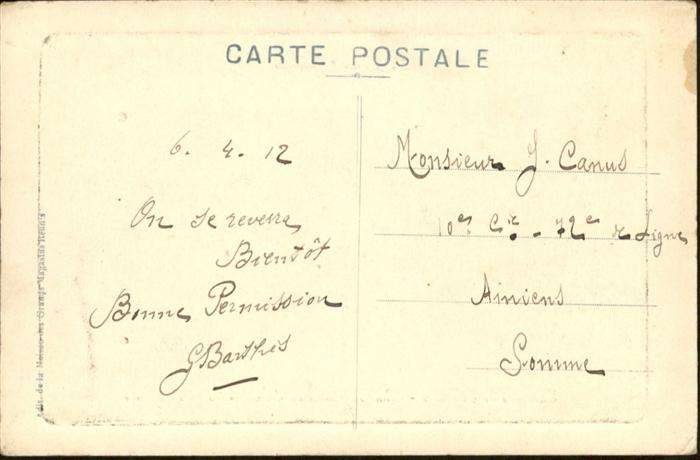 CARTE POSTALE
6. 4. 12
On se reverra
Bientôt
Bonne Permission
G Barthes
Monsieur J. Canus
10e Cie - 72e de Ligne
Amiens
Somme